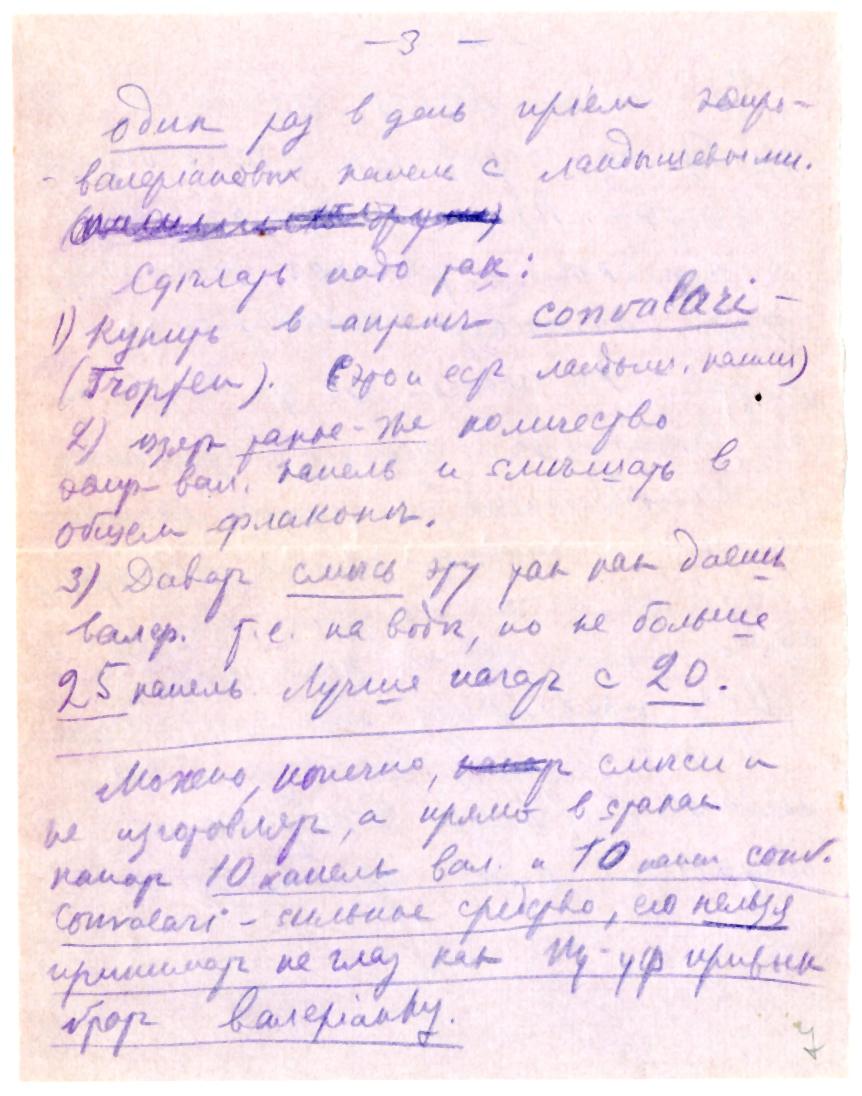 — 3 —
один раз в день прiем эфиро-
- валерiановых капель с ландышевыми.
Сдѣлать надо так:
1) Купить в аптекѣ convalari —
(Tropfen). (Это и есть ландыш. капли)
2) взять такое-же количество
эфир-вал. капель и смѣшать в
общем флаконѣ.
3) Давать смѣсь эту так как даешь
валер. т.е. на водѣ, но не больше
25 капель. Лучше начать с 20.
Можно, конечно, смѣси и
не изготовлять, а прямо в стакан
капать 10 капель вал. и 10 капел. conv.
Convalari - сильное средство, его нельзя
принимать на глаз как Пу-уф привык
брать валерiанку.